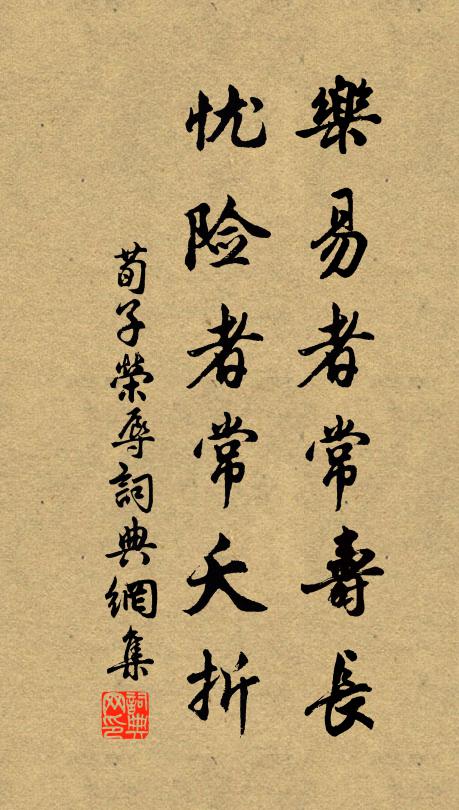 樂易者常壽長
忧险者常夭折
荀子榮辱詞典網集
詞典网印